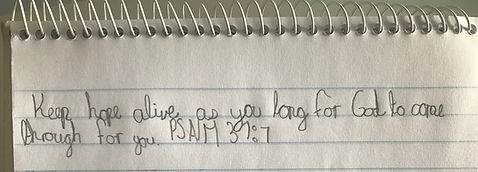 Keep hope alive, as you long for God to come
through for you. PSALM 37:7